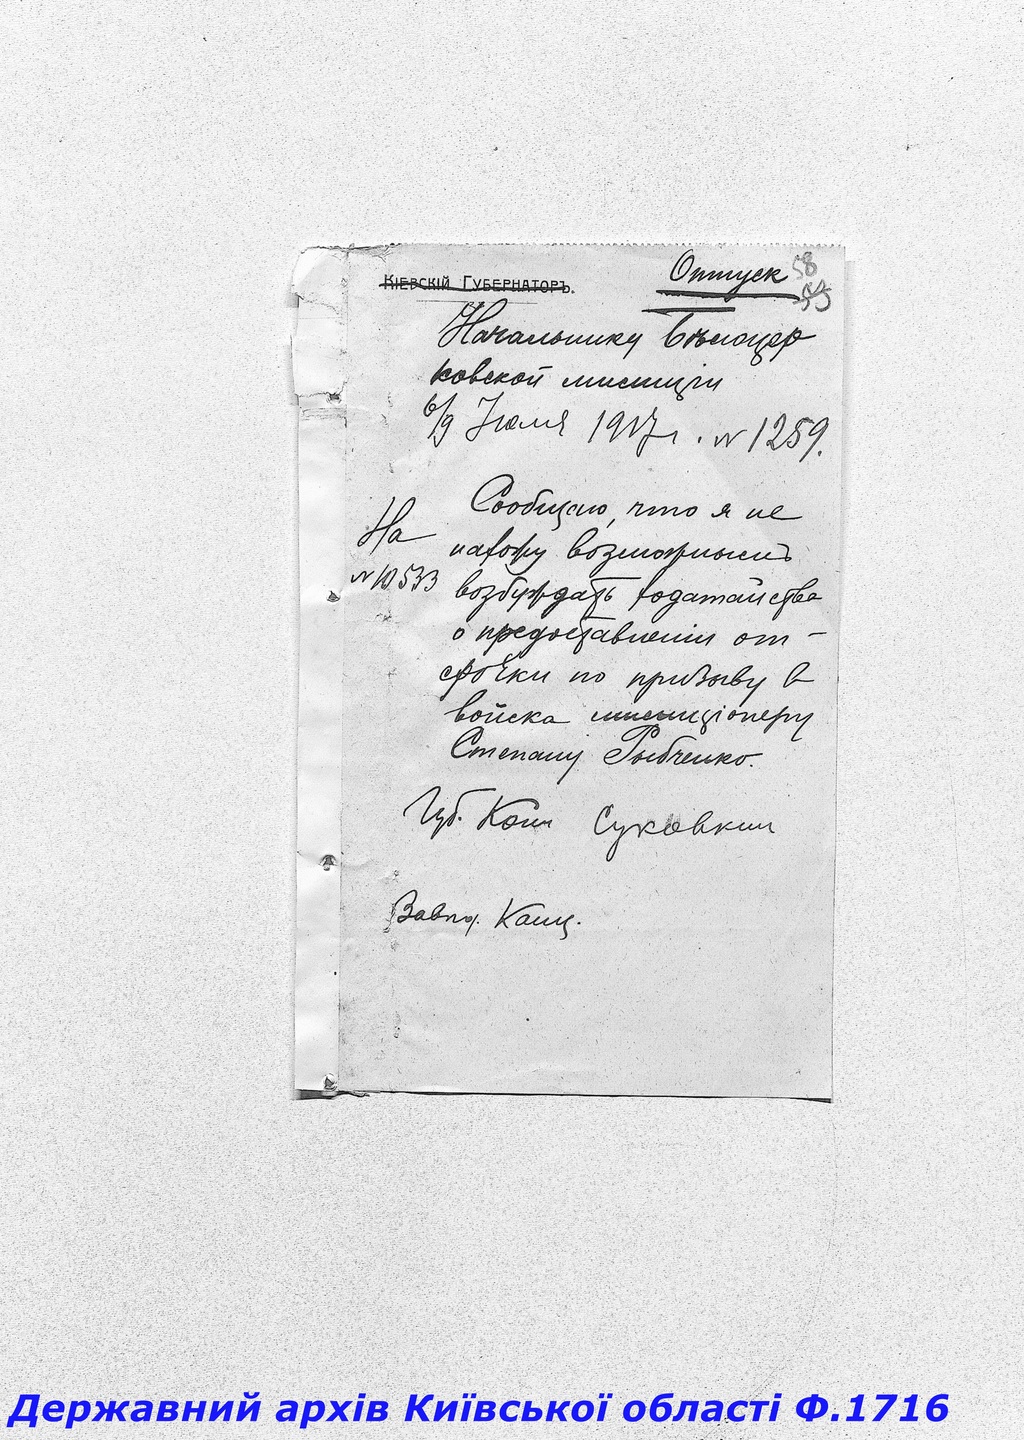 Отпуск
58
КІЕВСКІЙ ГУБЕРНАТОРЪ.
Начальнику Бѣлоцер
ковской милиціи
6/9 Іюля 1917 г. № 1259.
На
№ 10533
Сообщаю, что я не
нахожу возможнымъ
возбуждать ходатайства
о предоставленіи от-
срочки по призыву в
войска милиціонеру
Степану Рыбченко.
Губ. Ком Суковкин
Канц.
Державний архів Київської області Ф.1716